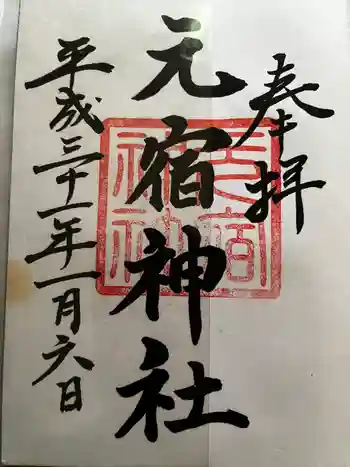 奉拝
元宿神社
平成三十一年一月六日
元宿
神社